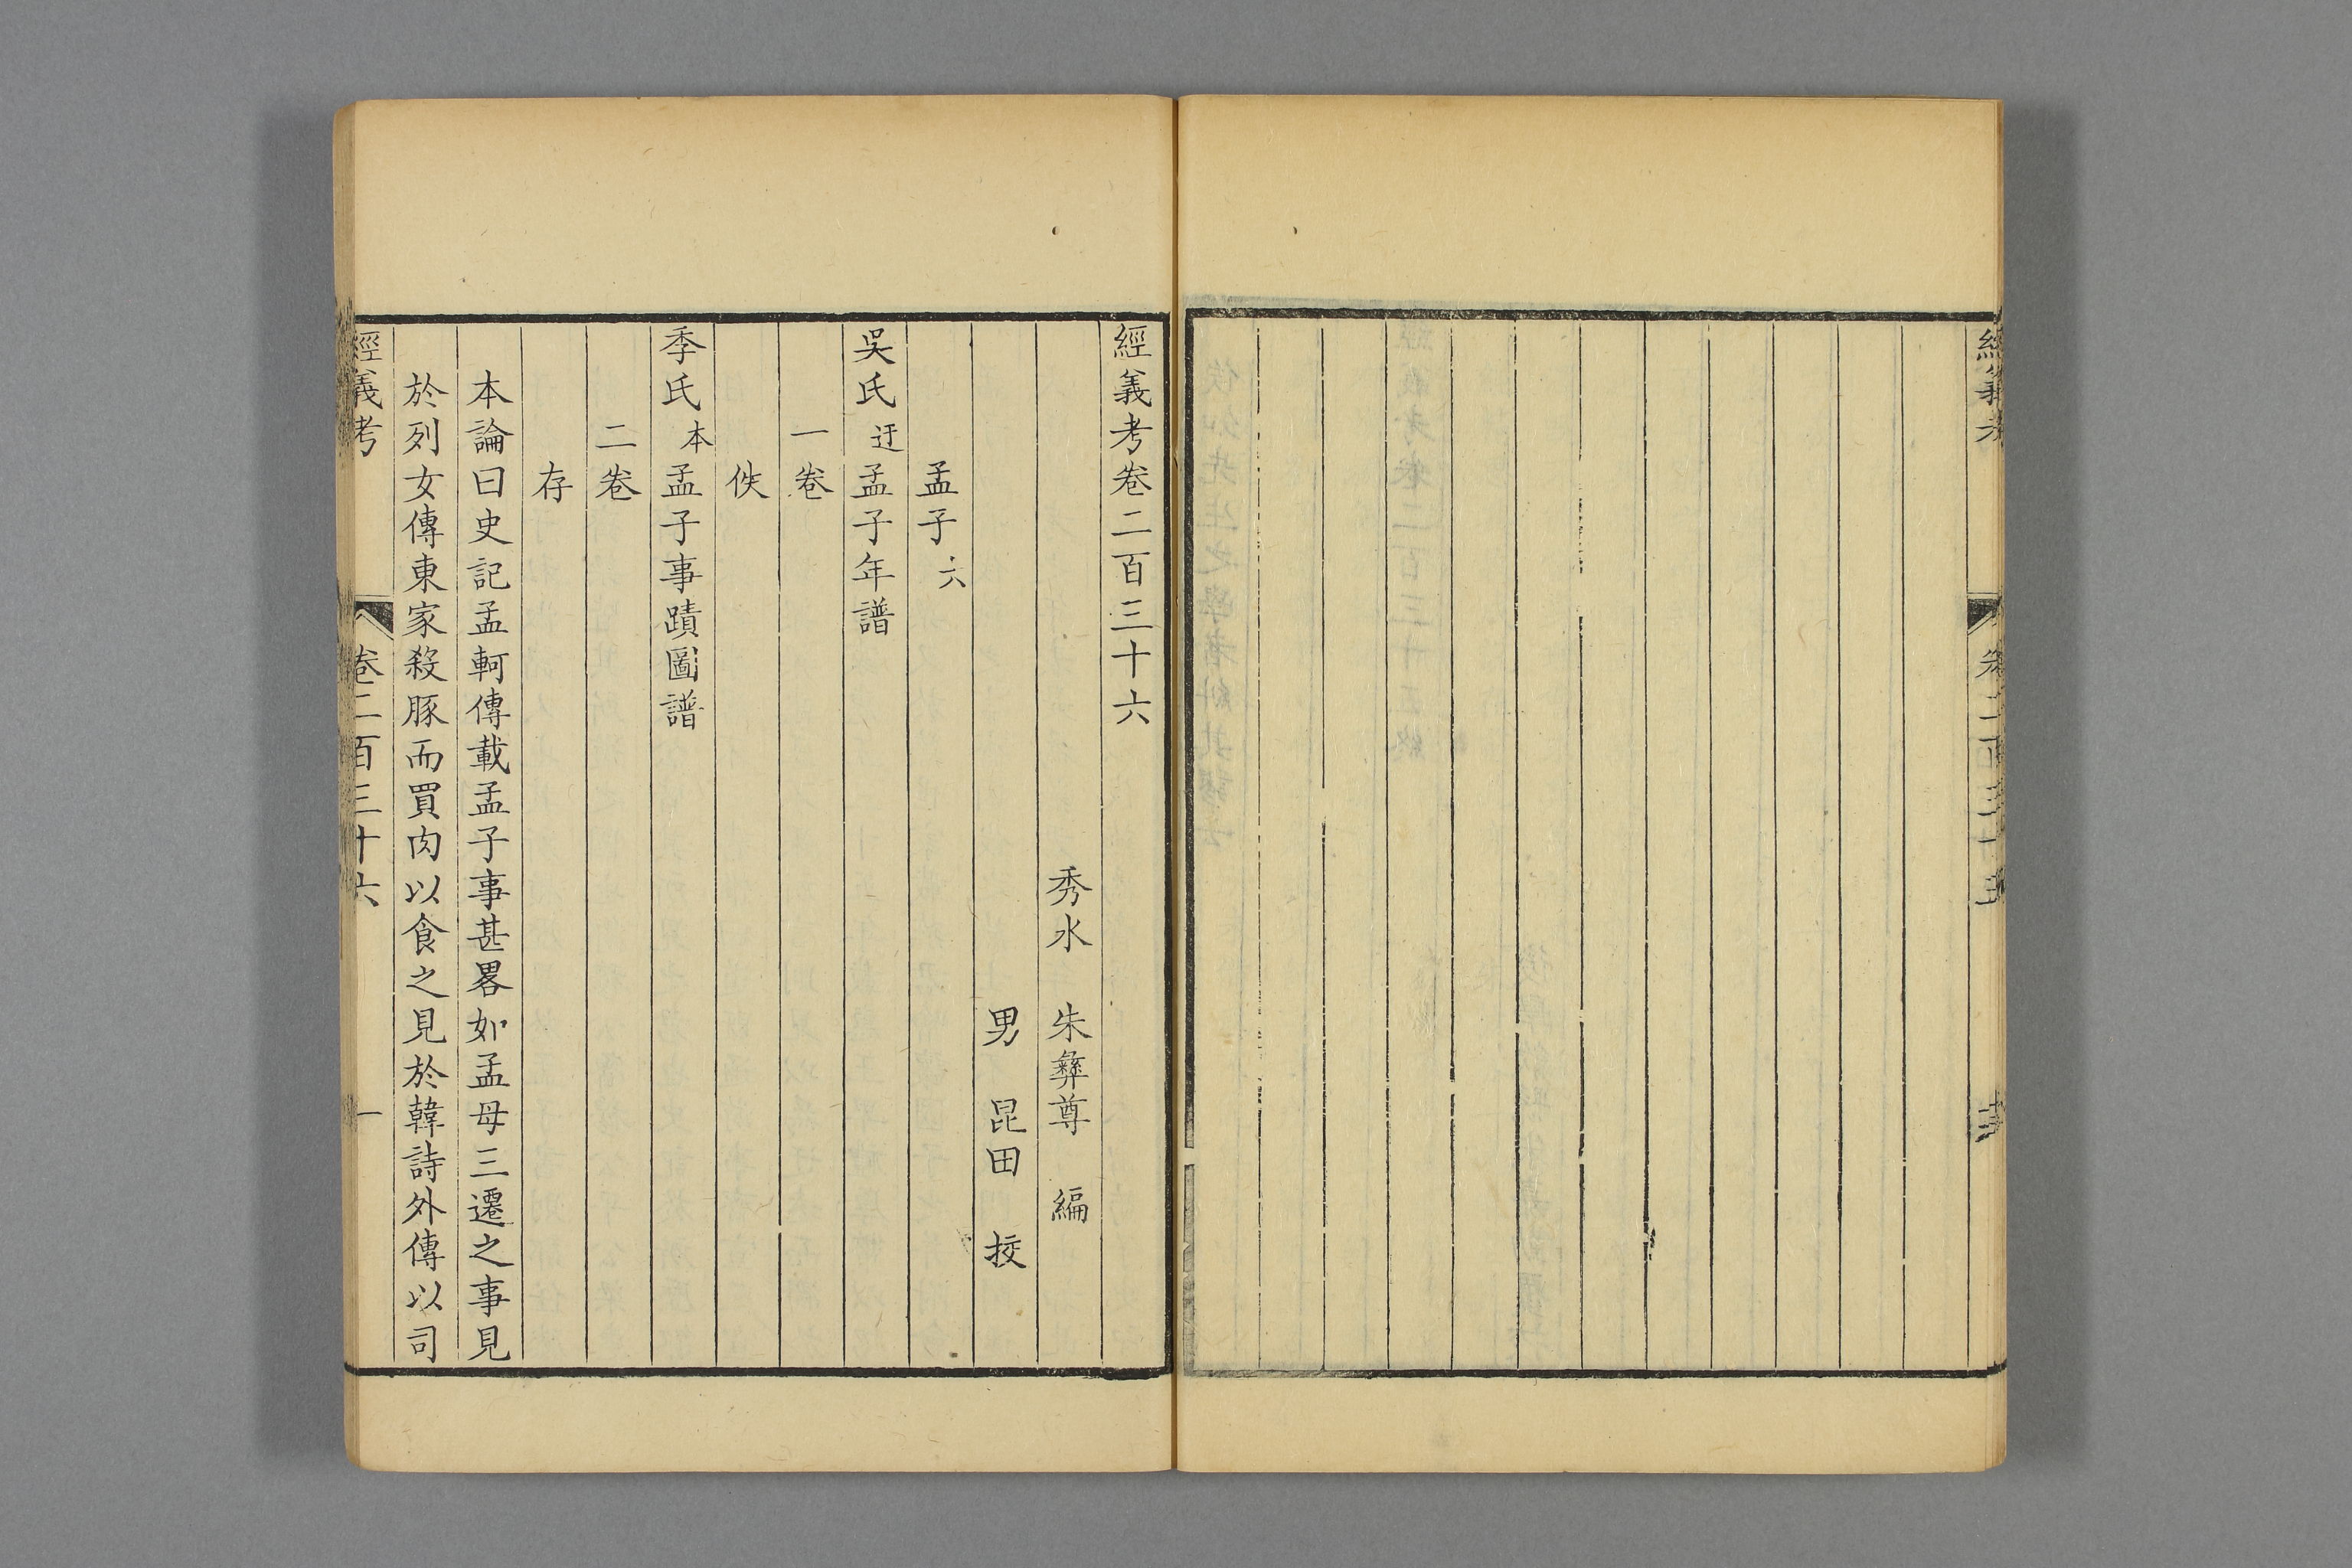 經義考卷二百三十六
秀水 朱彝尊 編
男 昆田 挍
孟子六
吳氏迂孟子年譜
一卷
佚
季氏本孟子事蹟圖譜
二卷
存
本論曰史記孟軻傳載孟子事甚畧如孟母三遷之事見
於列女傳東家殺豚而買肉以食之見於韓詩外傳以司
經義考 卷二百三十六 一